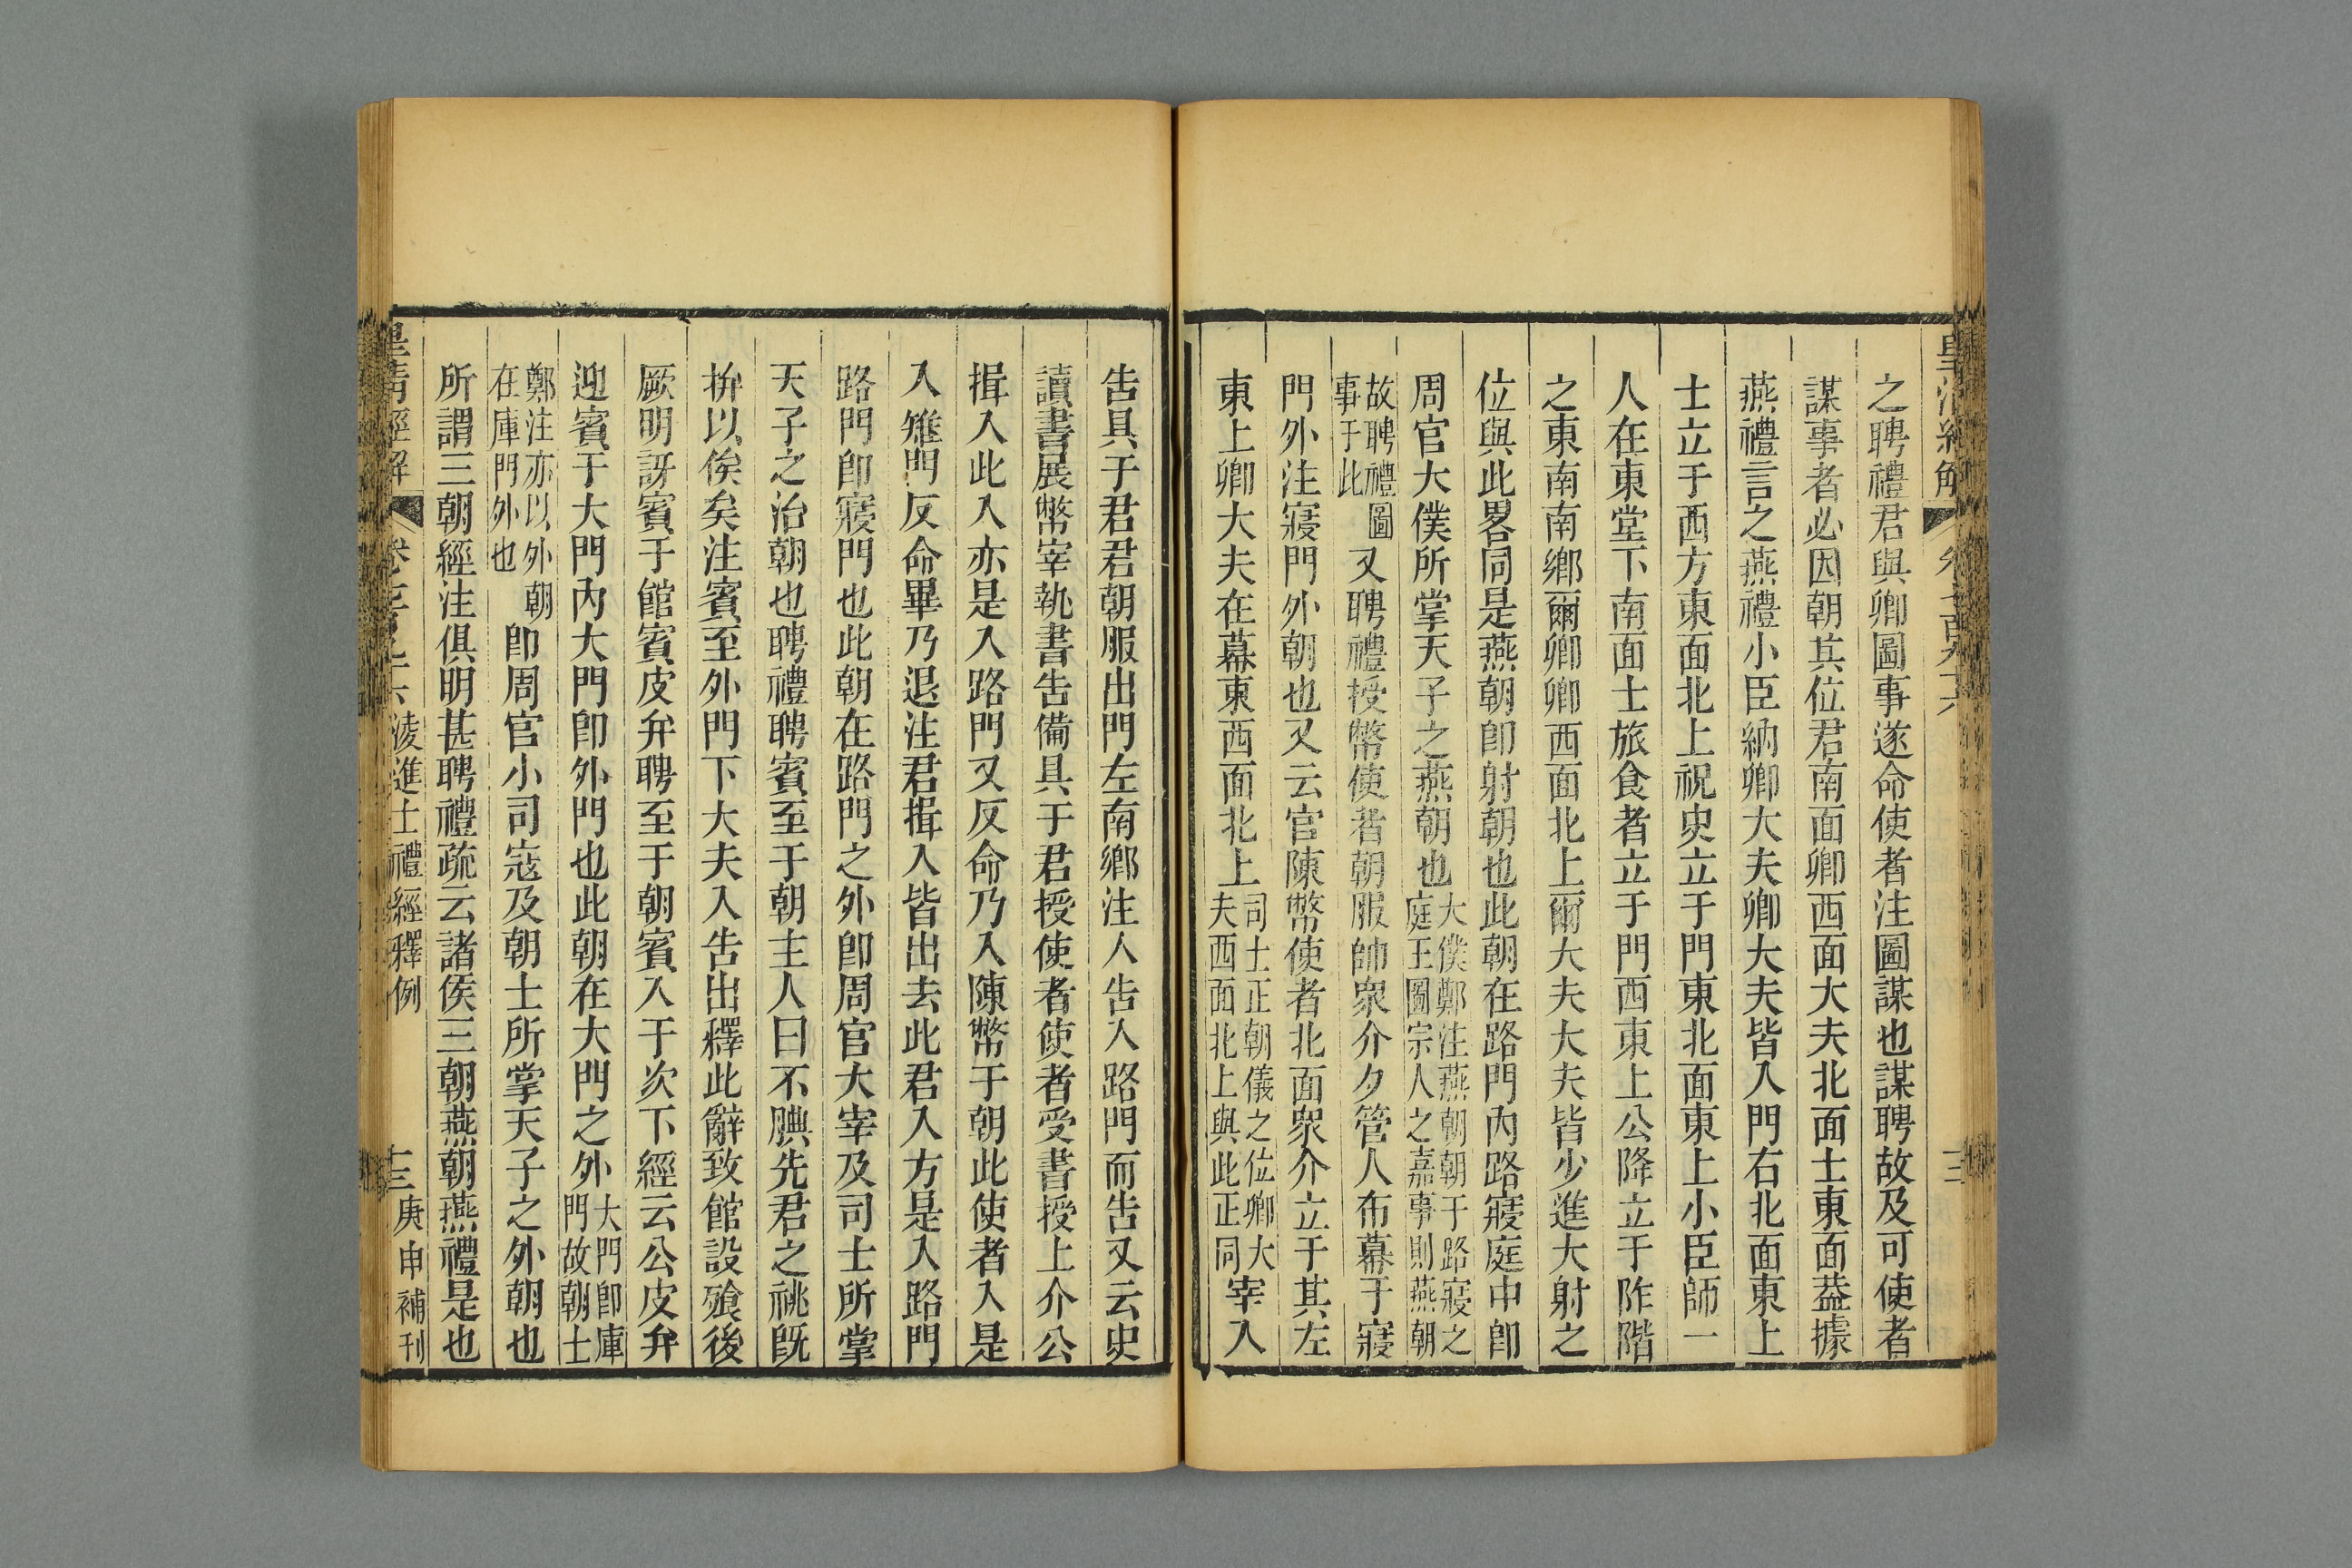 之聘禮君與卿圖事遂命使者注圖謀也謀聘故及可使者
謀事者必因朝其位君南面卿西面大夫北面士東面葢據
燕禮言之燕禮小臣納卿大夫卿大夫皆入門右北面東上
士立于西方東面北上祝史立于門東北面東上小臣師一
人在東堂下南面士旅食者立于門西東上公降立于阼階
之東南南鄉爾卿卿西面北上爾大夫大夫皆少進大射之
位與此畧同是燕朝卽射朝也此朝在路門內路寢庭中卽
周官大僕所掌天子之燕朝也大僕鄭注燕朝朝于路寢之庭王圖宗人之嘉事則燕朝
故聘禮圖事于此又聘禮授幣使者朝服帥衆介夕管人布幕于寢
門外注寢門外朝也又云官陳幣使者北面衆介立于其左
東上卿大夫在幕東西面北上司士正朝儀之位卿大夫西面北上與此正同宰入
告具于君君朝服出門左南鄉注人告入路門而告又云史
讀書展幣宰執書告備具于君授使者使者受書授上介公
揖入此入亦是入路門又反命乃入陳幣于朝此使者入是
入雉門反命畢乃退注君揖入皆出去此君入方是入路門
路門卽寢門也此朝在路門之外卽周官大宰及司士所掌
天子之治朝也聘禮聘賓至于朝主人曰不腆先君之祧旣
拚以俟矣注賓至外門下大夫入告出釋此辭致館設飧後
厥明訝賓于館賓皮弁聘至于朝賓入于次下經云公皮弁
迎賓于大門內大門卽外門也此朝在大門之外大門卽庫門故朝士
鄭注亦以外朝在庫門外也卽周官小司寇及朝士所掌天子之外朝也
所謂三朝經注俱明甚聘禮疏云諸侯三朝燕朝燕禮是也
皇清經解 卷七百九十六 淩進士禮經釋例 十三 庚申補刊